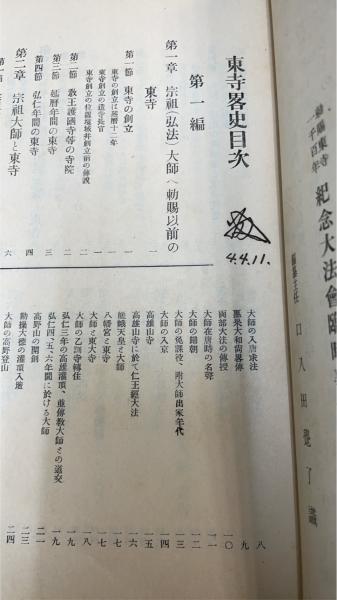 勅賜東寺
一千百年
紀念大法會臨時
編纂主任
東寺畧史目次
第一編
第一章　宗祖(弘法)大師へ勅賜以前の
東寺
第一節　東寺の創立
東寺の創立は延曆十二年
東寺創立の造寺長官
東寺創立の位置境域并創立前の傳說
第二節　敎王護國寺等の寺院
第三節　延曆年間の東寺
第四節　弘仁年間の東寺
第二章　宗祖大師と東寺
4.4.11.
大師の入唐求法　八
惠果大和尙畧傳　九
兩部大法の傳授　一〇
大師在唐時の名聲　一一
大師の歸朝　一二
大師の免課役、附大師出家年代　一三
大師の入京　一四
高雄山寺　一五
嵯峨天皇と大師　一六
高雄山寺に於て仁王經大法　一七
八幡宮と東寺　一七
大師と東大寺　一八
大師の乙訓寺轉住　一八
弘仁三年の高雄灌頂、並傳敎大師との道交　一九
弘仁四、五、六年間に於ける大師　一九
高野山の開創　二一
勤操大德の灌頂入壇　二三
大師の高野登山　二四